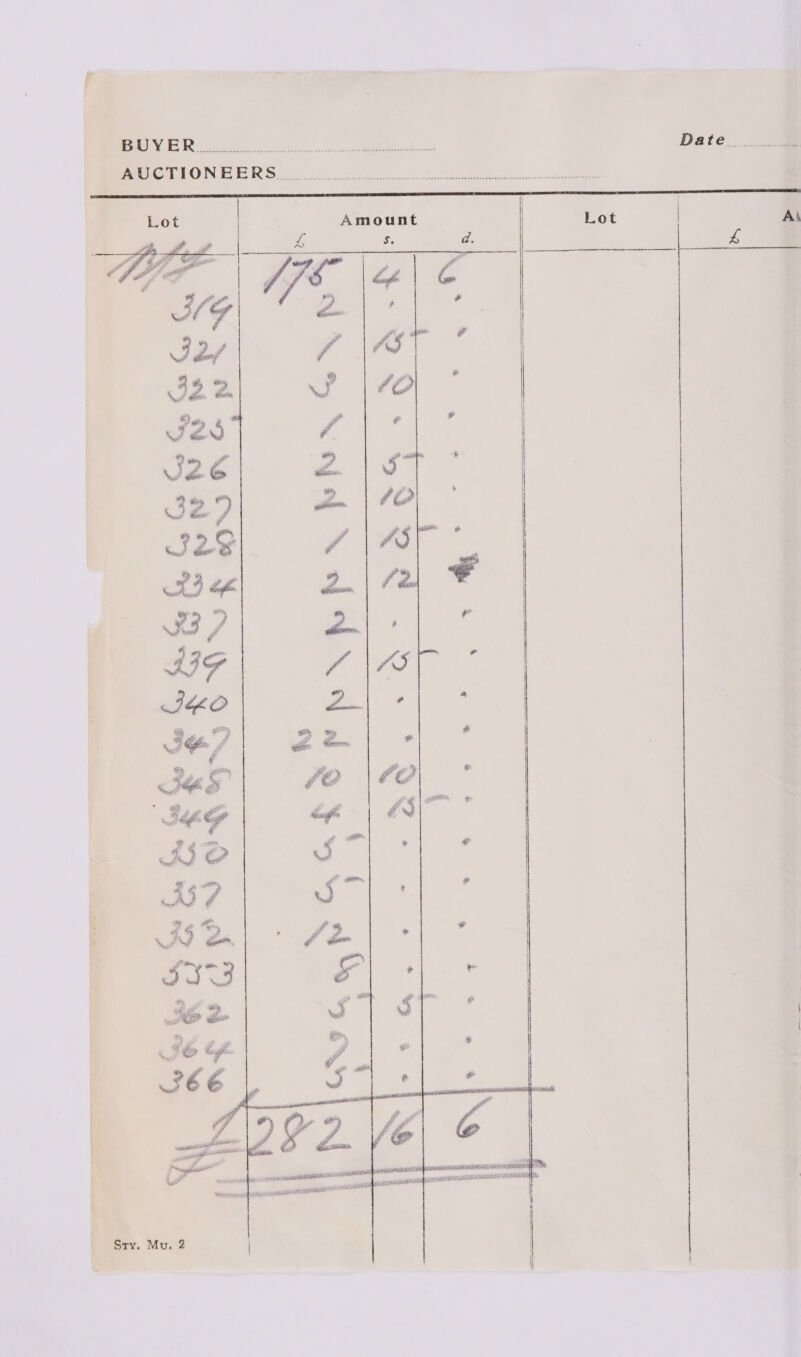 BUYER
Date
AUCTIONEERS
Lot Amount Lot
£ s. d. £
B/F 175 4 6
319 2 . .
321 1 15 .
322 3 10 .
325 1 . .
326 2 5 .
327 2 10 .
328 1 15 .
334 2 12
337 2 . .
339 1 15 .
340 2 . .
347 22 . .
348 10 10 .
349 4 15 .
350 5 . .
357 5 . .
352 12 . .
353 8 . .
362 5 5 .
364 7 . .
366 5 . .
£ 282 16 6
Sty. Mu. 2